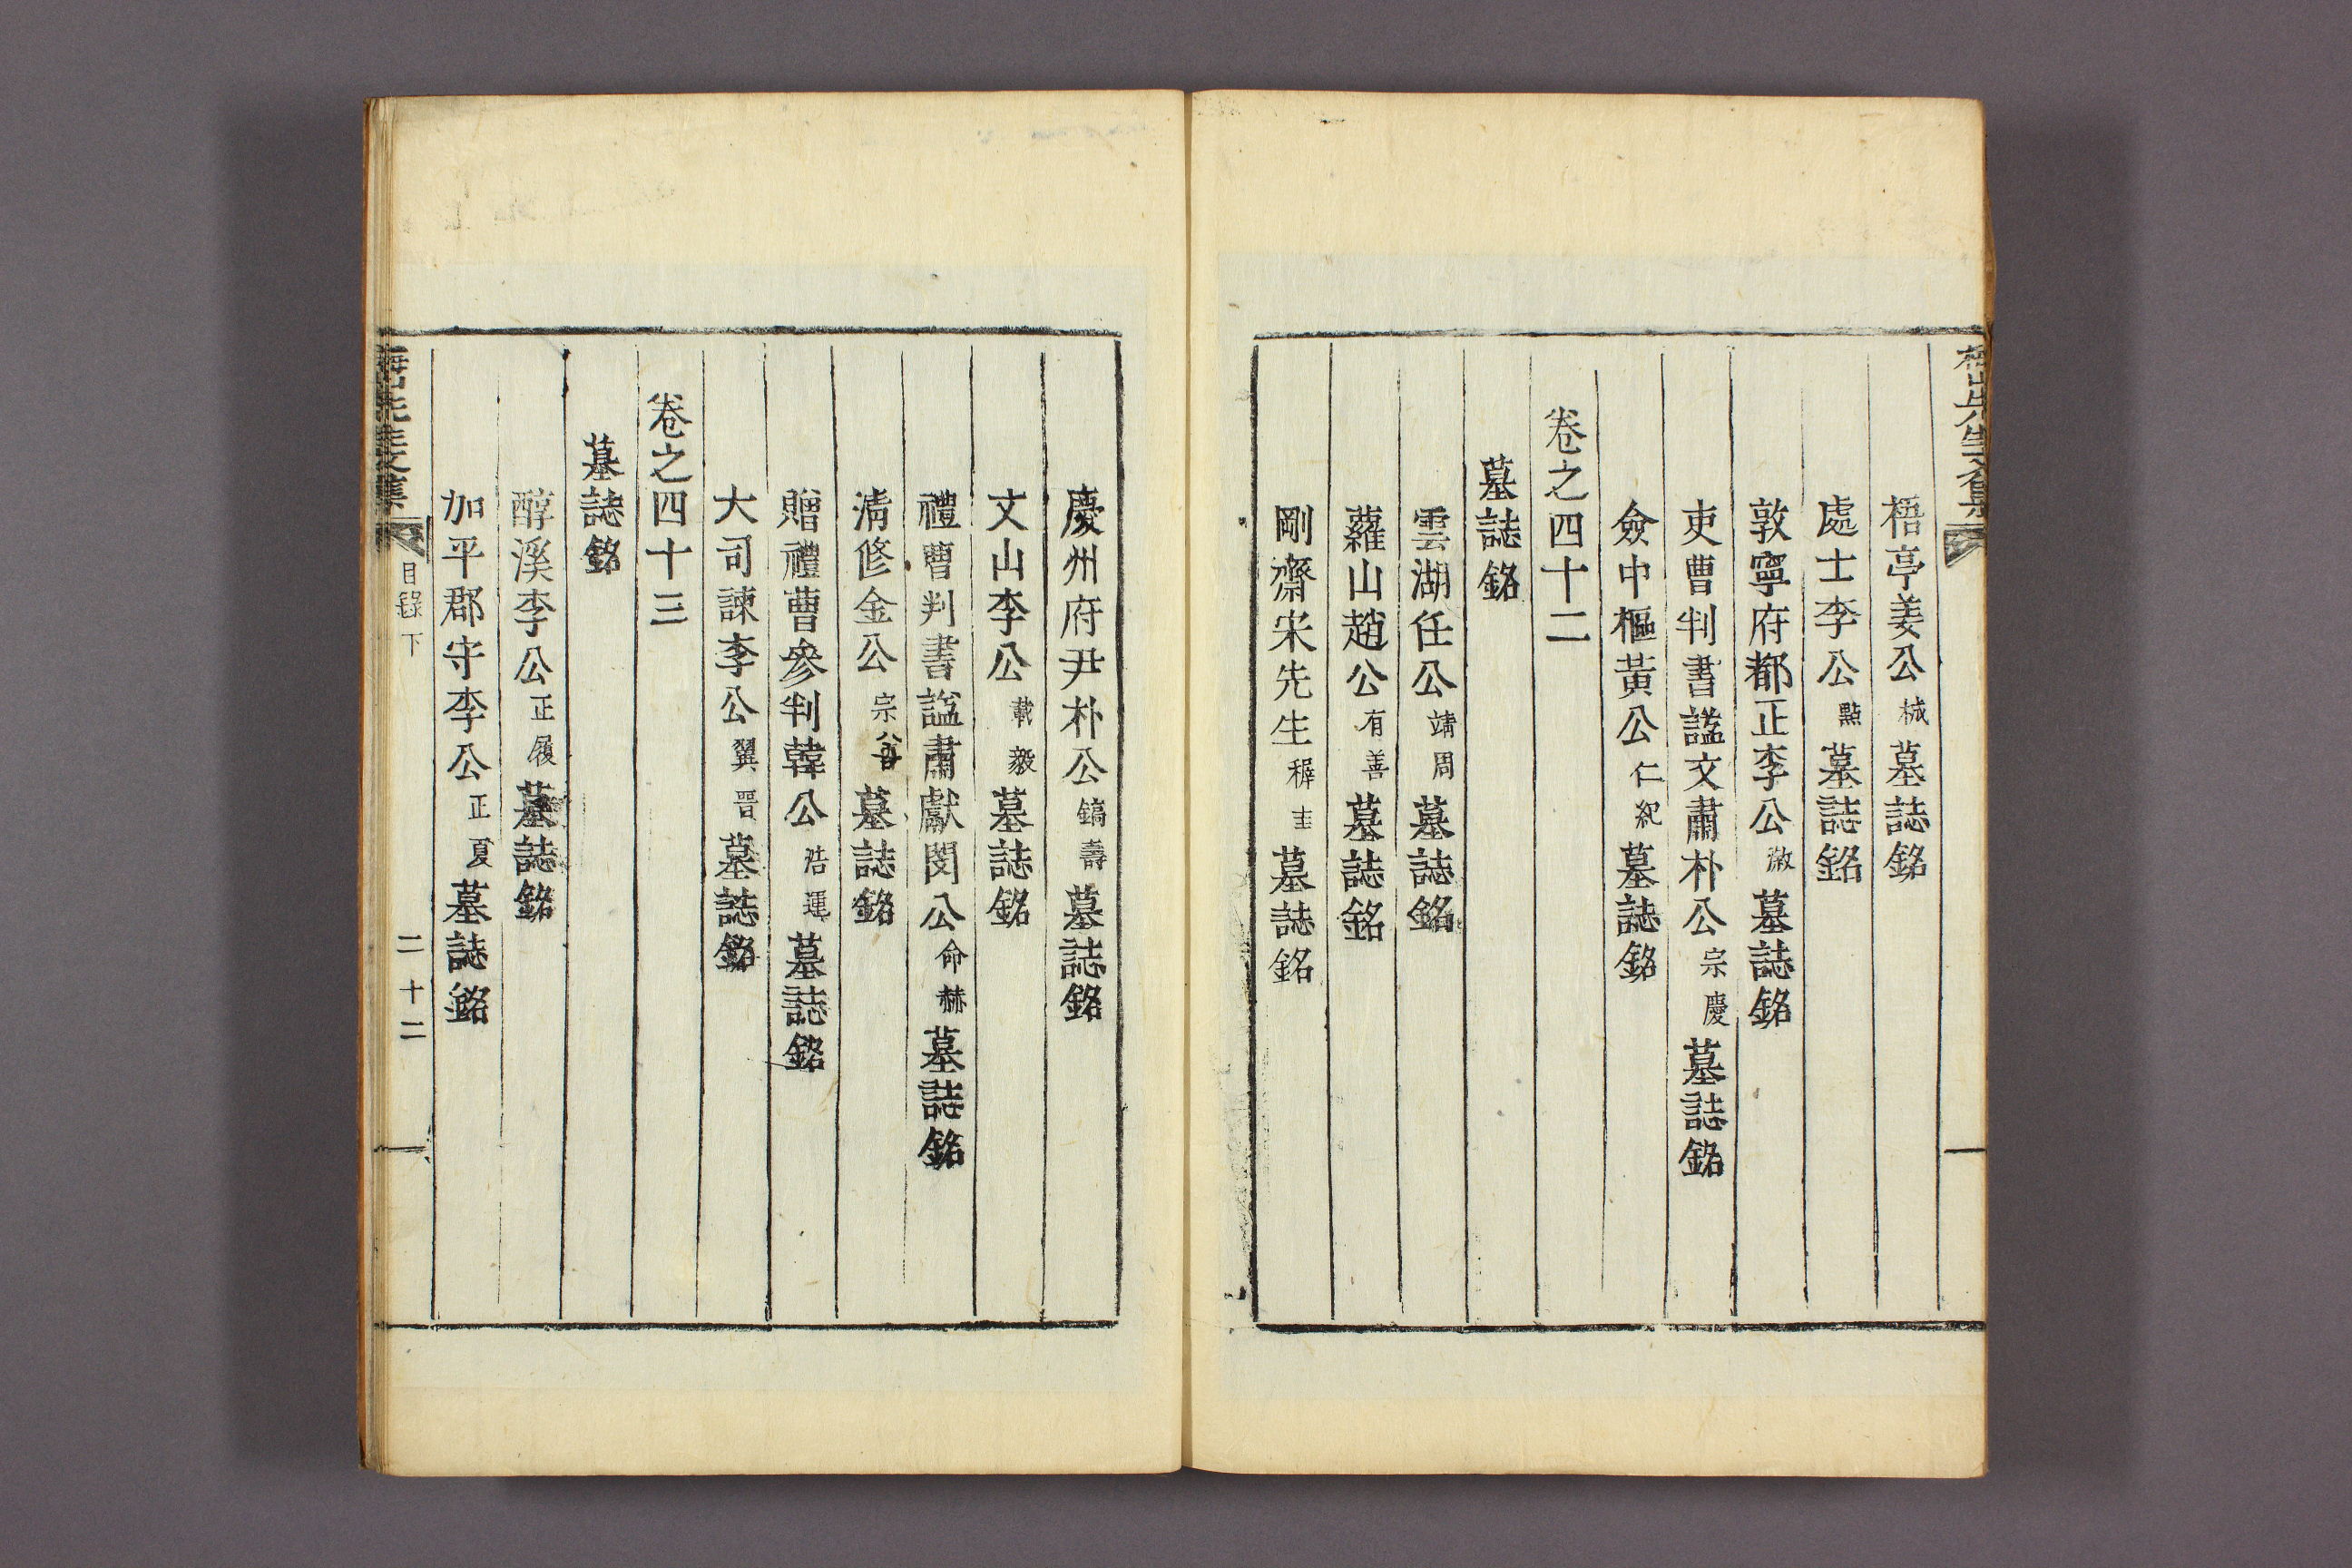 梅山先生文集
梧亭姜公棫墓誌銘
處士李公點墓誌銘
敦寧府都正李公墓誌銘
吏曹判書謚文肅朴公宗慶墓誌銘
僉中樞黃公仁紀墓誌銘
卷之四十二
墓誌銘
雲湖任公靖周墓誌銘
蘿山趙公有善墓誌銘
剛齋宋先生穉圭墓誌銘
慶州府尹朴公鏑壽墓誌銘
文山李公載毅墓誌銘
禮曹判書謚肅獻閔公命赫墓誌銘
清修金公宗善墓誌銘
贈禮曹參判韓公浩運墓誌銘
大司諫李公翼晉墓誌銘
卷之四十三
墓誌銘
醇溪李公正履墓誌銘
加平郡守李公正夏墓誌銘
梅山先生文集 目錄下 二十二